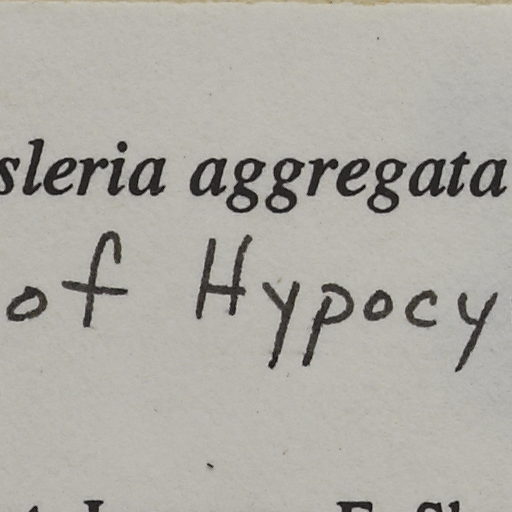 sleria aggregata
of Hypocy